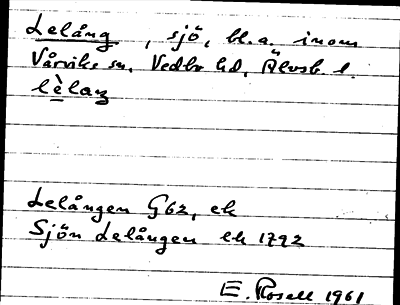 Lelång, sjö, bl.a. inom
Vårviks sn, Vedbo hd, Älvsb. l.
lèlaŋ
Lelången G62, ek
Sjön Lelången lk 1792
E. Rosell 1961